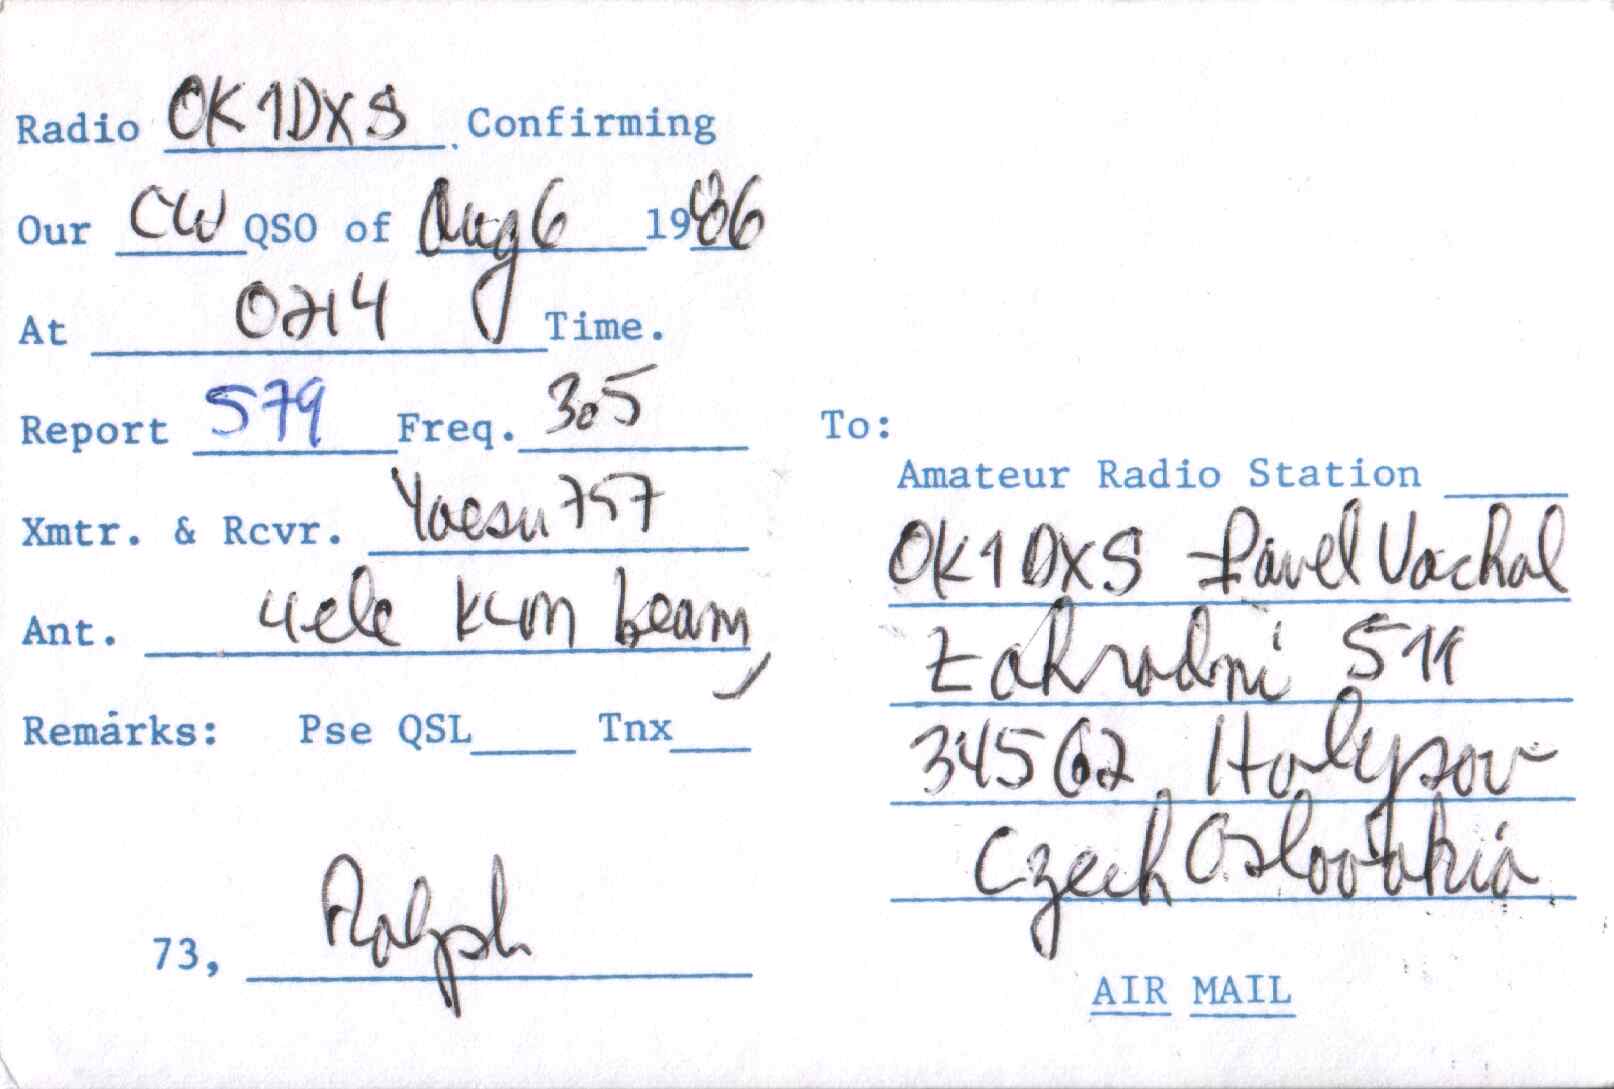 Radio OK1DXS. Confirming
Our CW QSO of Aug 6 1986
At 0214 Time.
Report 579 Freq. 305
Xmtr. & Rcvr. Yaesu 757
Ant. 4ele KLM beam
Remarks: Pse QSL____ Tnx___
73, Ralph
To:
Amateur Radio Station _____
OK1DXS Pavel Vachal
Zahradni 511
34562 Holysov
Czech Oslovakia
AIR MAIL